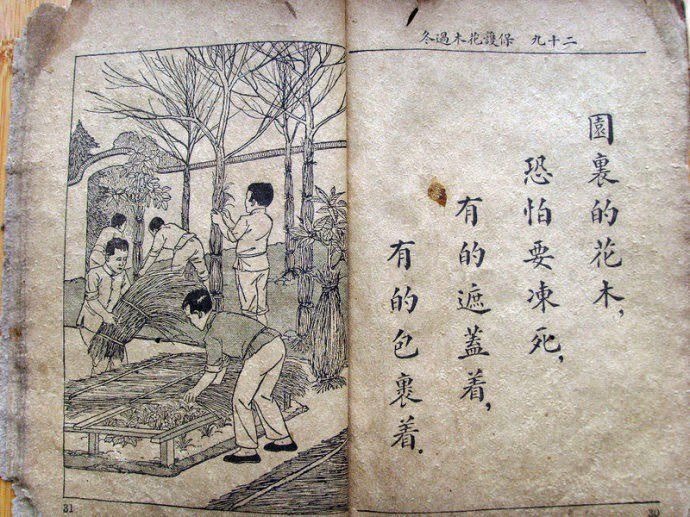 二十九 保護花木過冬
園裏的花木,
恐怕要凍死,
有的遮蓋着,
有的包裹着.
30
31